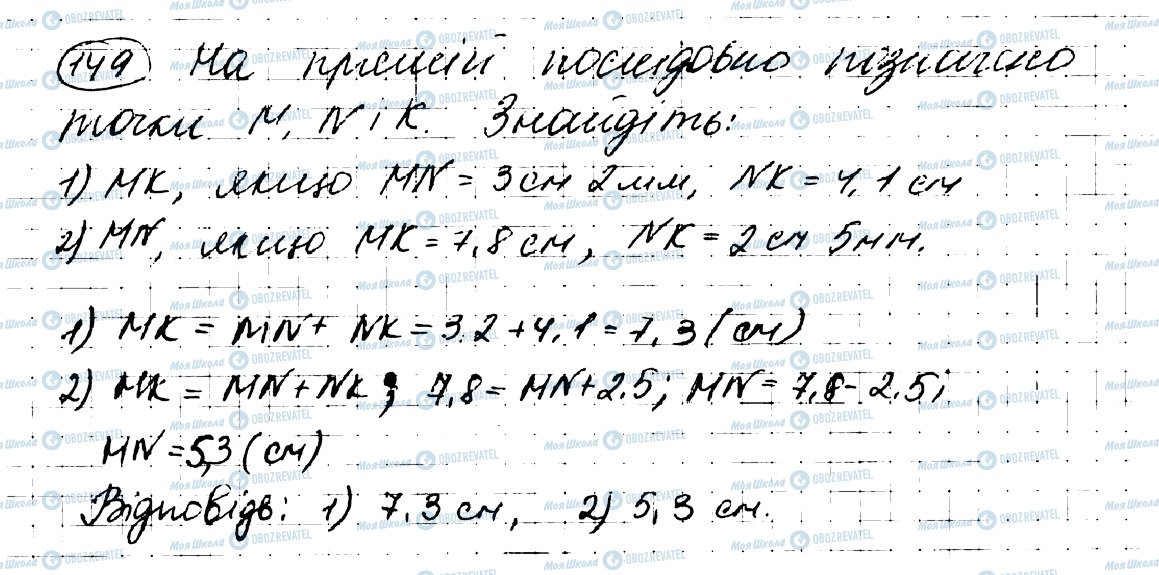 149 На прямій послідовно позначено
точки M, N і K. Знайдіть:
1) MK, якщо MN = 3 см 2 мм, NK = 4,1 см
2) MN, якщо MK = 7,8 см, NK = 2 см 5 мм.
1) MK = MN + NK = 3.2 + 4,1 = 7,3 (см)
2) MK = MN + NK; 7,8 = MN + 2.5; MN = 7,8 - 2.5;
MN = 5,3 (см)
Відповідь: 1) 7.3 см, 2) 5,3 см.